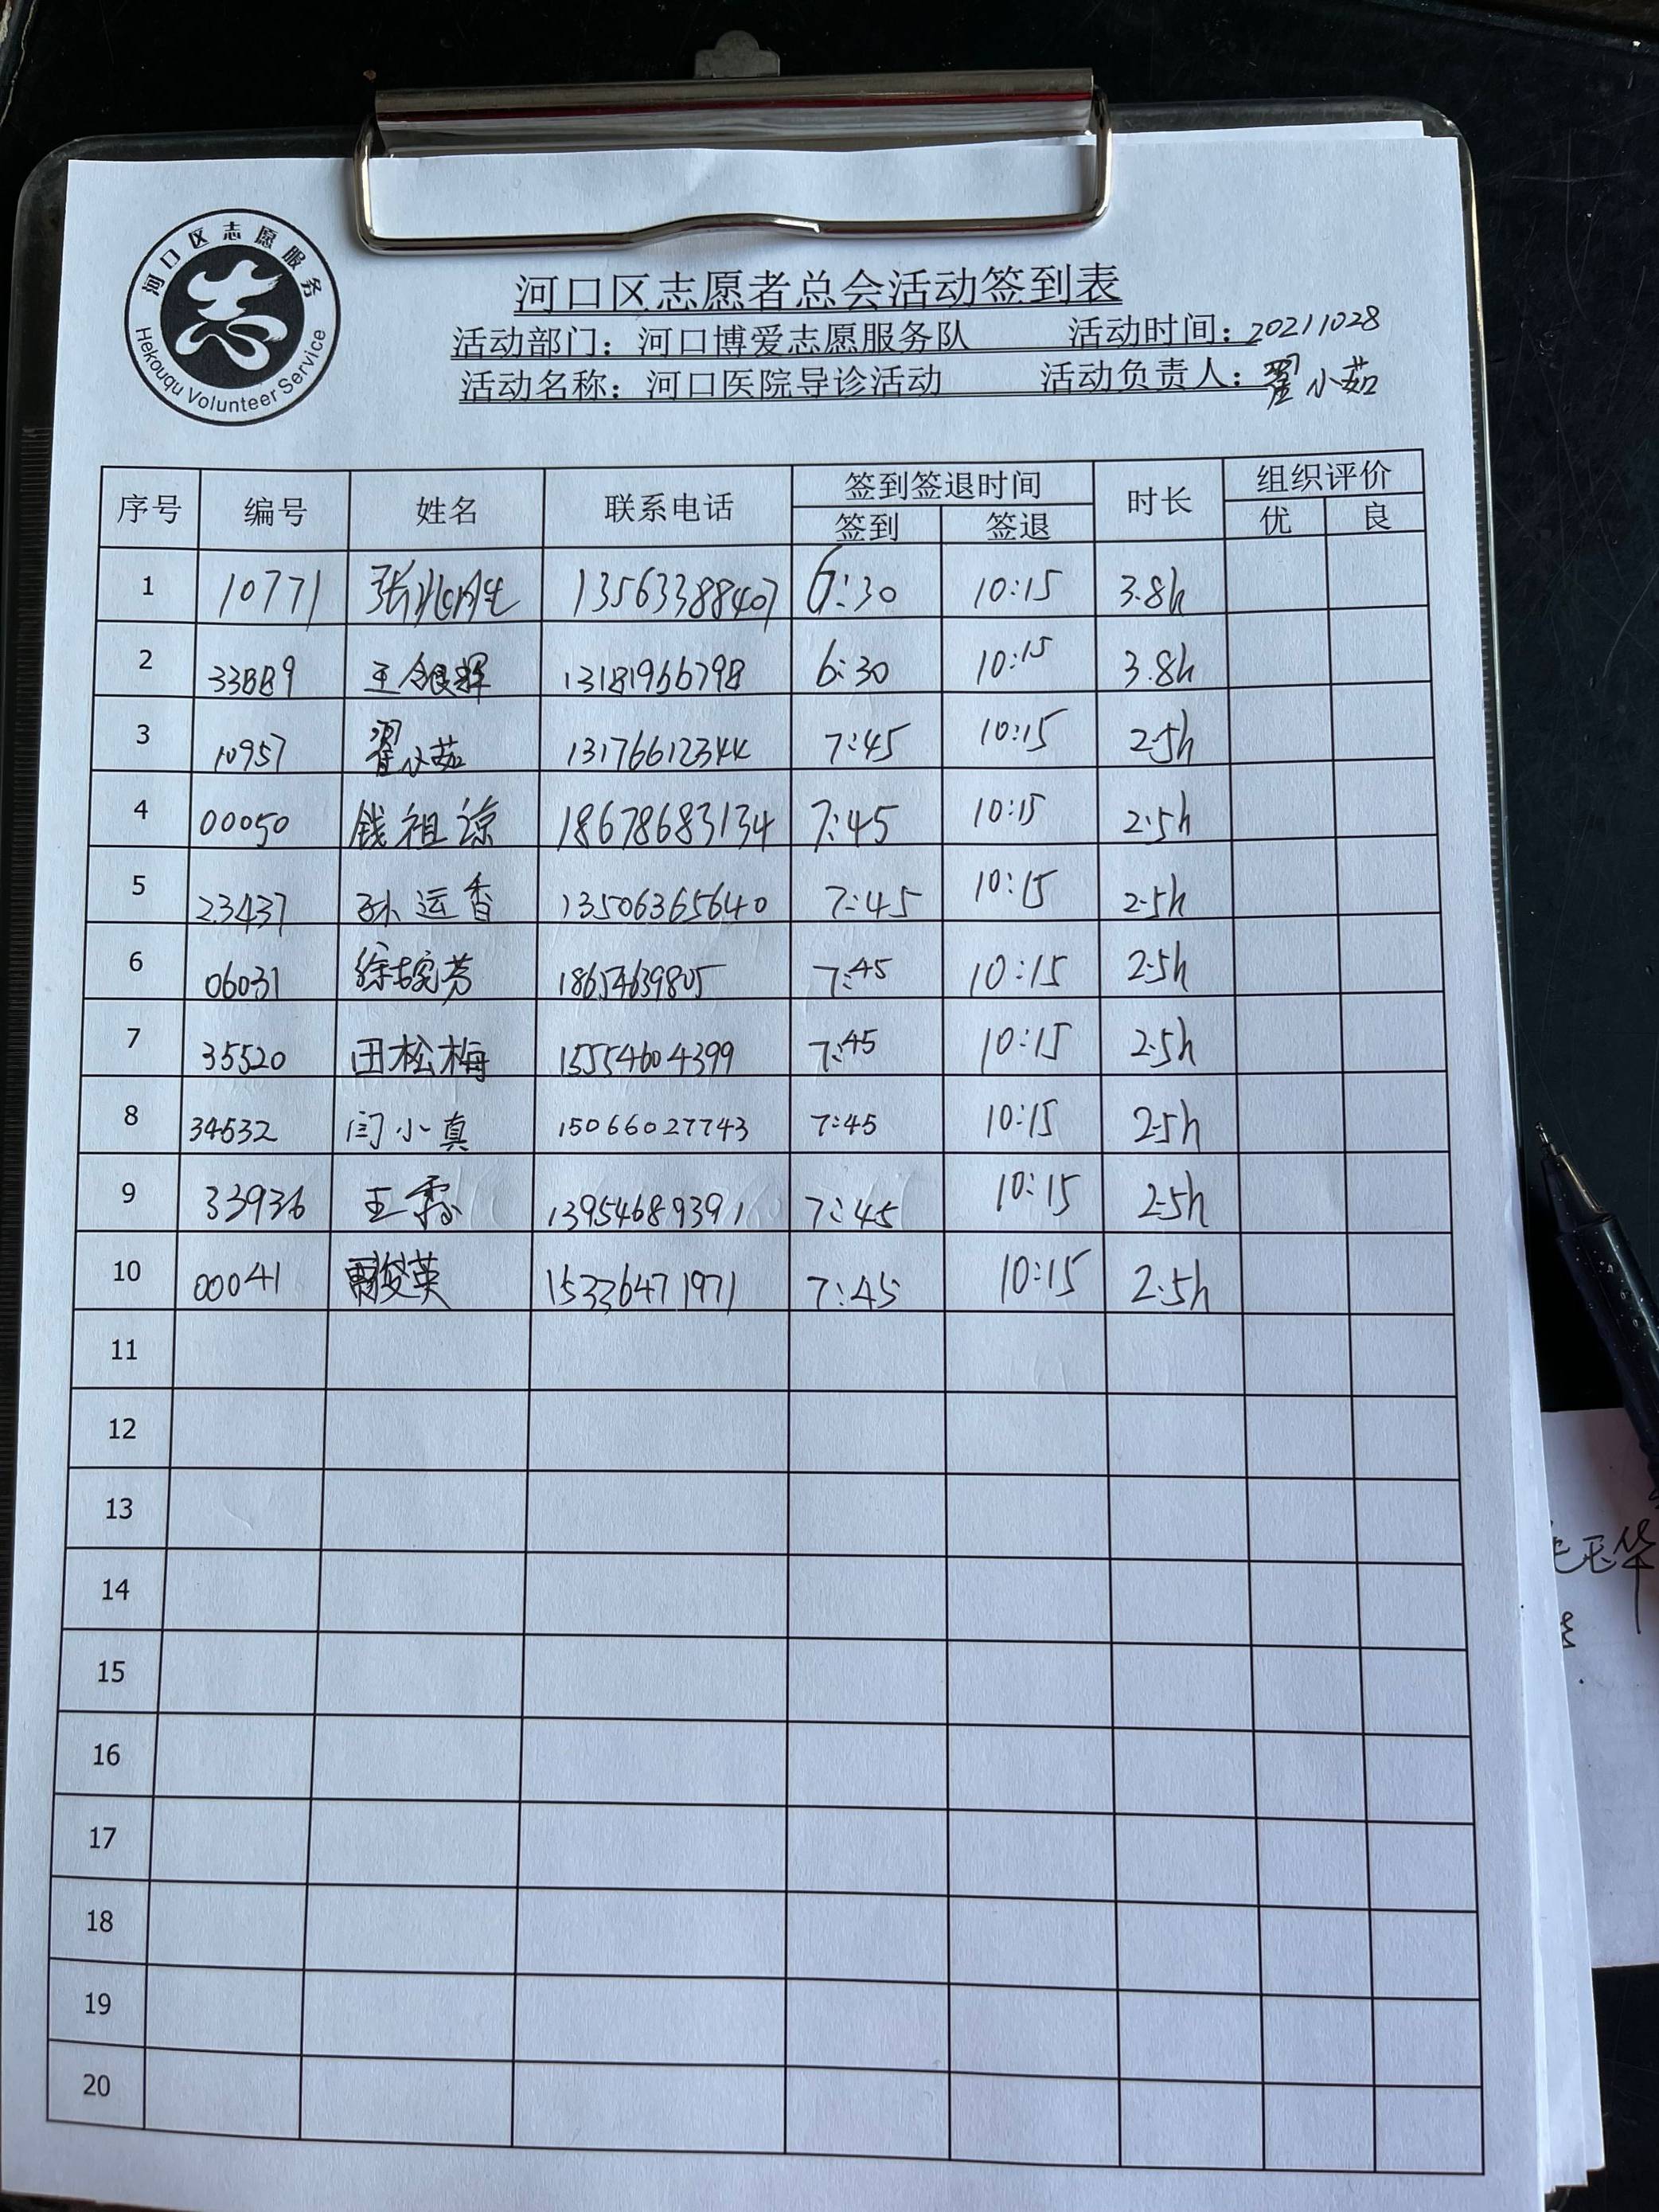 河口区志愿服务
Hekouqu Volunteer Service
河口区志愿者总会活动签到表
活动部门：河口博爱志愿服务队 活动时间：20211028
活动名称：河口医院导诊活动 活动负责人：翟小茹
序号 编号 姓名 联系电话 签到签退时间 时长 组织评价
签到 签退 优 良
1 10771 13563388407 6:30 10:15 3.8h
2 33889 王银辉 13181966798 6:30 10:15 3.8h
3 10957 翟小茹 13176612344 7:45 10:15 2.5h
4 00050 钱祖谅 18678683134 7:45 10:15 2.5h
5 23437 孙运香 13506365640 7:45 10:15 2.5h
6 06031 7:45 10:15 2.5h
7 35520 田松梅 15554604399 7:45 10:15 2.5h
8 34532 闫小真 15066027743 7:45 10:15 2.5h
9 33936 王霞 13954689391 7:45 10:15 2.5h
10 00041 15336471971 7:45 10:15 2.5h
11
12
13
14
15
16
17
18
19
20